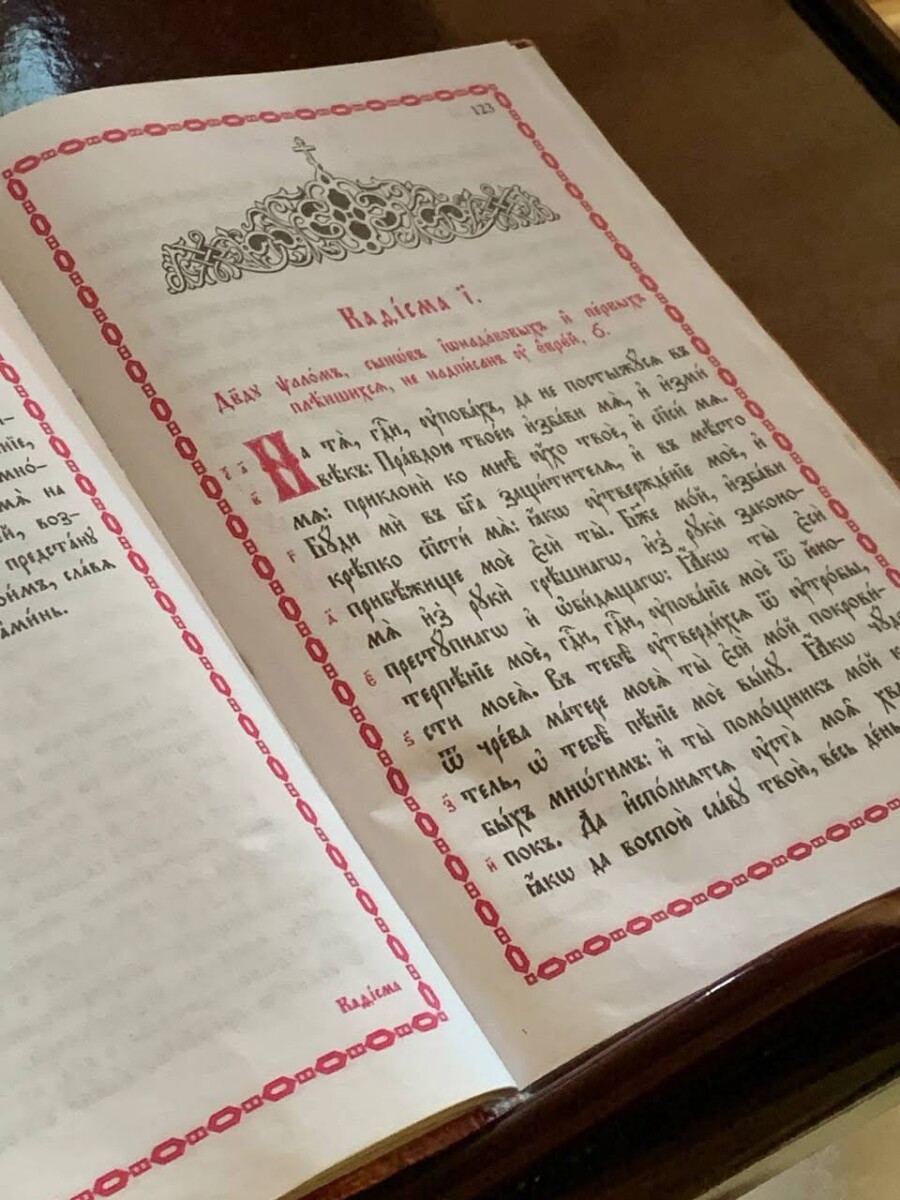 ніе,
мно́-
мѧ̀ на
й, воз-
предста́нꙋ
ои́мъ, сла́вѧ
а҆ми́нь.
Каді́сма
123
Каѳі́сма і҃.
Дв҃дꙋ ѱало́мъ, сынѡ́въ і҆ѡнада́вовыхъ и҆ пе́рвыхъ
плѣ́ншихсѧ, не надпи́санъ ᲂу҆ є҆врє́й, о҃.
о҃ а҃ На тѧ̀, гдⷭ҇и, ᲂу҆пова́хъ, да не постыжꙋ́сѧ въ
в҃ вѣ́къ: Пра́вдою твое́ю и҆зба́ви мѧ̀, и҆ и҆зми́
мѧ: приклонѝ ко мнѣ̀ ᲂу҆́хо твоѐ, и҆ сп҃си́ мѧ.
г҃ Бꙋ́ди мѝ въ бг҃а защи́тителѧ, и҆ въ мѣ́сто
крѣ́пко сп҃сти́ мѧ: ꙗ҆́кѡ ᲂу҆твержде́нїе моѐ, и҆
д҃ прибѣ́жище моѐ є҆сѝ ты̀. Бж҃е мо́й, и҆зба́ви
мѧ̀ и҆з̾ рꙋкѝ грѣ́шнагѡ, и҆з̾ рꙋкѝ законо-
є҃ престꙋ́пнагѡ и҆ ѡ҆би́дѧщагѡ: Ꙗ҆́кѡ ты̀ є҆сѝ
терпѣ́нїе моѐ, гдⷭ҇и, гдⷭ҇и, ᲂу҆пова́нїе моѐ ѿ ю҆́но-
ѕ҃ сти моеѧ̀. Въ тебѣ̀ ᲂу҆тверди́хсѧ ѿ ᲂу҆тро́бы,
ѿ чре́ва ма́тере моеѧ̀ ты̀ є҆сѝ мо́й покрови́-
з҃ тель, ѡ҆ тебѣ̀ пѣ́нїе моѐ вы́нꙋ. Ꙗ҆́кѡ чꙋ́до
бы́хъ мнѡ́гимъ: и҆ ты̀ помо́щникъ мо́й
и҃ покъ. Да и҆спо́лнѧтсѧ ᲂу҆ста̀ моѧ̑
ꙗ҆́кѡ да воспою̀ сла́вꙋ твою̀, ве́сь де́нь